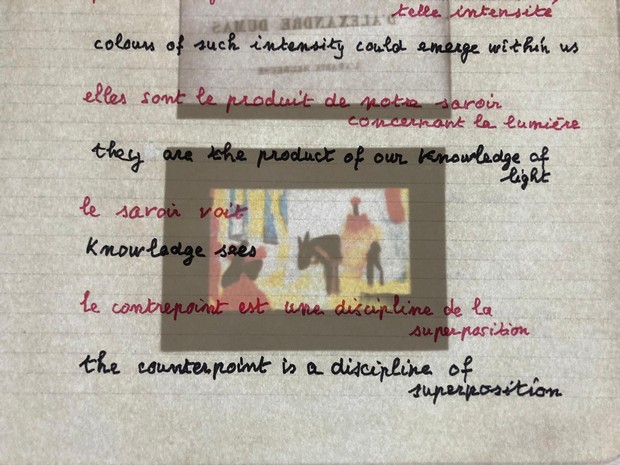 telle intensité
D'ALEXANDRE DUMAS
colours of such intensity could emerge within us
elles sont le produit de notre savoir
concernant la lumière
they are the product of our knowledge of
light
le savoir voit
Knowledge sees
le contrepoint est une discipline de la
superposition
the counterpoint is a discipline of
superposition